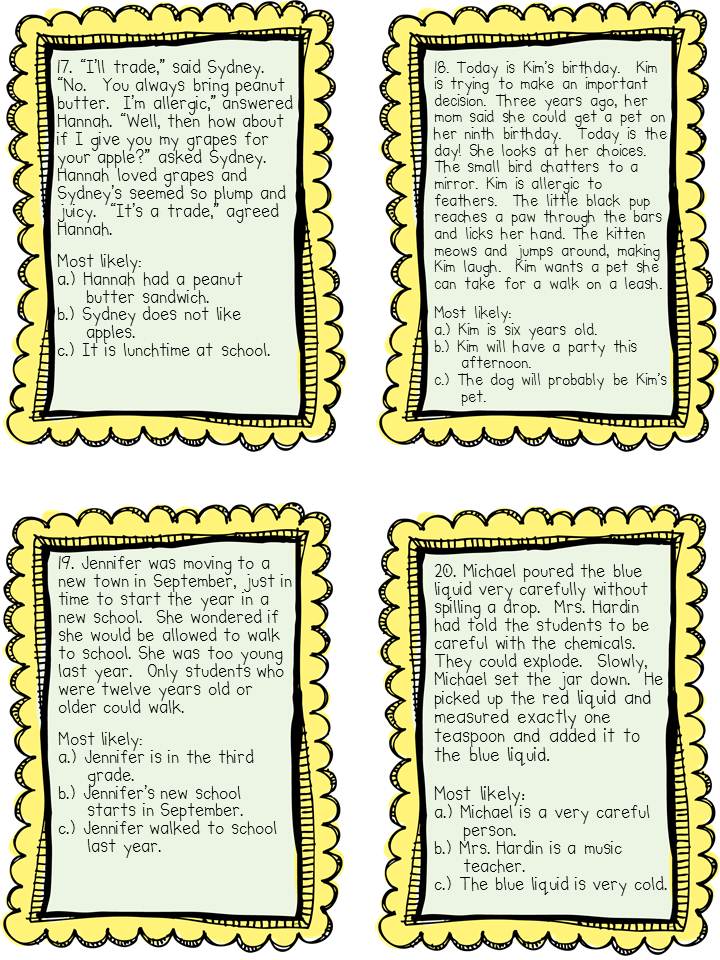 17. “I’ll trade,” said Sydney.
“No. You always bring peanut
butter. I’m allergic,” answered
Hannah. “Well, then how about
if I give you my grapes for
your apple?” asked Sydney.
Hannah loved grapes and
Sydney’s seemed so plump and
juicy. “It’s a trade,” agreed
Hannah.
Most likely:
a.) Hannah had a peanut
butter sandwich.
b.) Sydney does not like
apples.
c.) It is lunchtime at school.
18. Today is Kim’s birthday. Kim
is trying to make an important
decision. Three years ago, her
mom said she could get a pet on
her ninth birthday. Today is the
day! She looks at her choices.
The small bird chatters to a
mirror. Kim is allergic to
feathers. The little black pup
reaches a paw through the bars
and licks her hand. The kitten
meows and jumps around, making
Kim laugh. Kim wants a pet she
can take for a walk on a leash.
Most likely:
a.) Kim is six years old.
b.) Kim will have a party this
afternoon.
c.) The dog will probably be Kim’s
pet.
19. Jennifer was moving to a
new town in September, just in
time to start the year in a
new school. She wondered if
she would be allowed to walk
to school. She was too young
last year. Only students who
were twelve years old or
older could walk.
Most likely:
a.) Jennifer is in the third
grade.
b.) Jennifer’s new school
starts in September.
c.) Jennifer walked to school
last year.
20. Michael poured the blue
liquid very carefully without
spilling a drop. Mrs. Hardin
had told the students to be
careful with the chemicals.
They could explode. Slowly,
Michael set the jar down. He
picked up the red liquid and
measured exactly one
teaspoon and added it to
the blue liquid.
Most likely:
a.) Michael is a very careful
person.
b.) Mrs. Hardin is a music
teacher.
c.) The blue liquid is very cold.